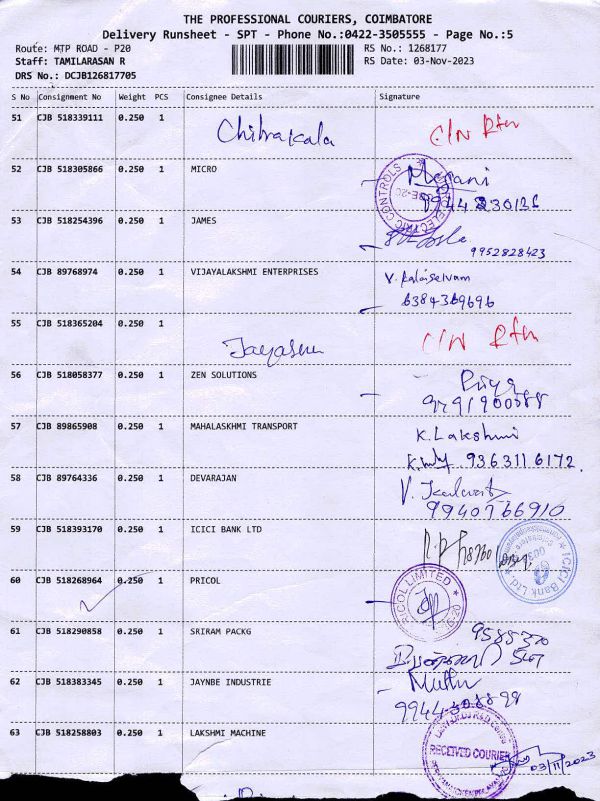 THE PROFESSIONAL COURIERS, COIMBATORE
Delivery Runsheet - SPT - Phone No.:0422-3505555 - Page No.:5
Route: MTP ROAD - P20
RS No.: 1268177
Staff: TAMILARASAN R
RS Date: 03-Nov-2023
DRS No.: DCJB126817705
S No Consignment No Weight PCS Consignee Details Signature
51 CJB 518339111 0.250 1
Chitrakala C/N Rtn
52 CJB 518305866 0.250 1 MICRO
53 CJB 518254396 0.250 1 JAMES
9952828423
54 CJB 89768974 0.250 1 VIJAYALAKSHMI ENTERPRISES V. Kalaiselvam
6384369696
55 CJB 518365204 0.250 1
Jayasree C/N Rtn
56 CJB 518058377 0.250 1 ZEN SOLUTIONS Priya
57 CJB 89865908 0.250 1 MAHALASKHMI TRANSPORT K. Lakshmi
9363116172
58 CJB 89764336 0.250 1 DEVARAJAN
9940766910
59 CJB 518393170 0.250 1 ICICI BANK LTD
ICICI Bank Ltd.
60 CJB 518268964 0.250 1 PRICOL
PRICOL LIMITED
61 CJB 518290858 0.250 1 SRIRAM PACKG
62 CJB 518383345 0.250 1 JAYNBE INDUSTRIE Muthu
63 CJB 518258803 0.250 1 LAKSHMI MACHINE
RECEIVED COURIER
03/11/2023